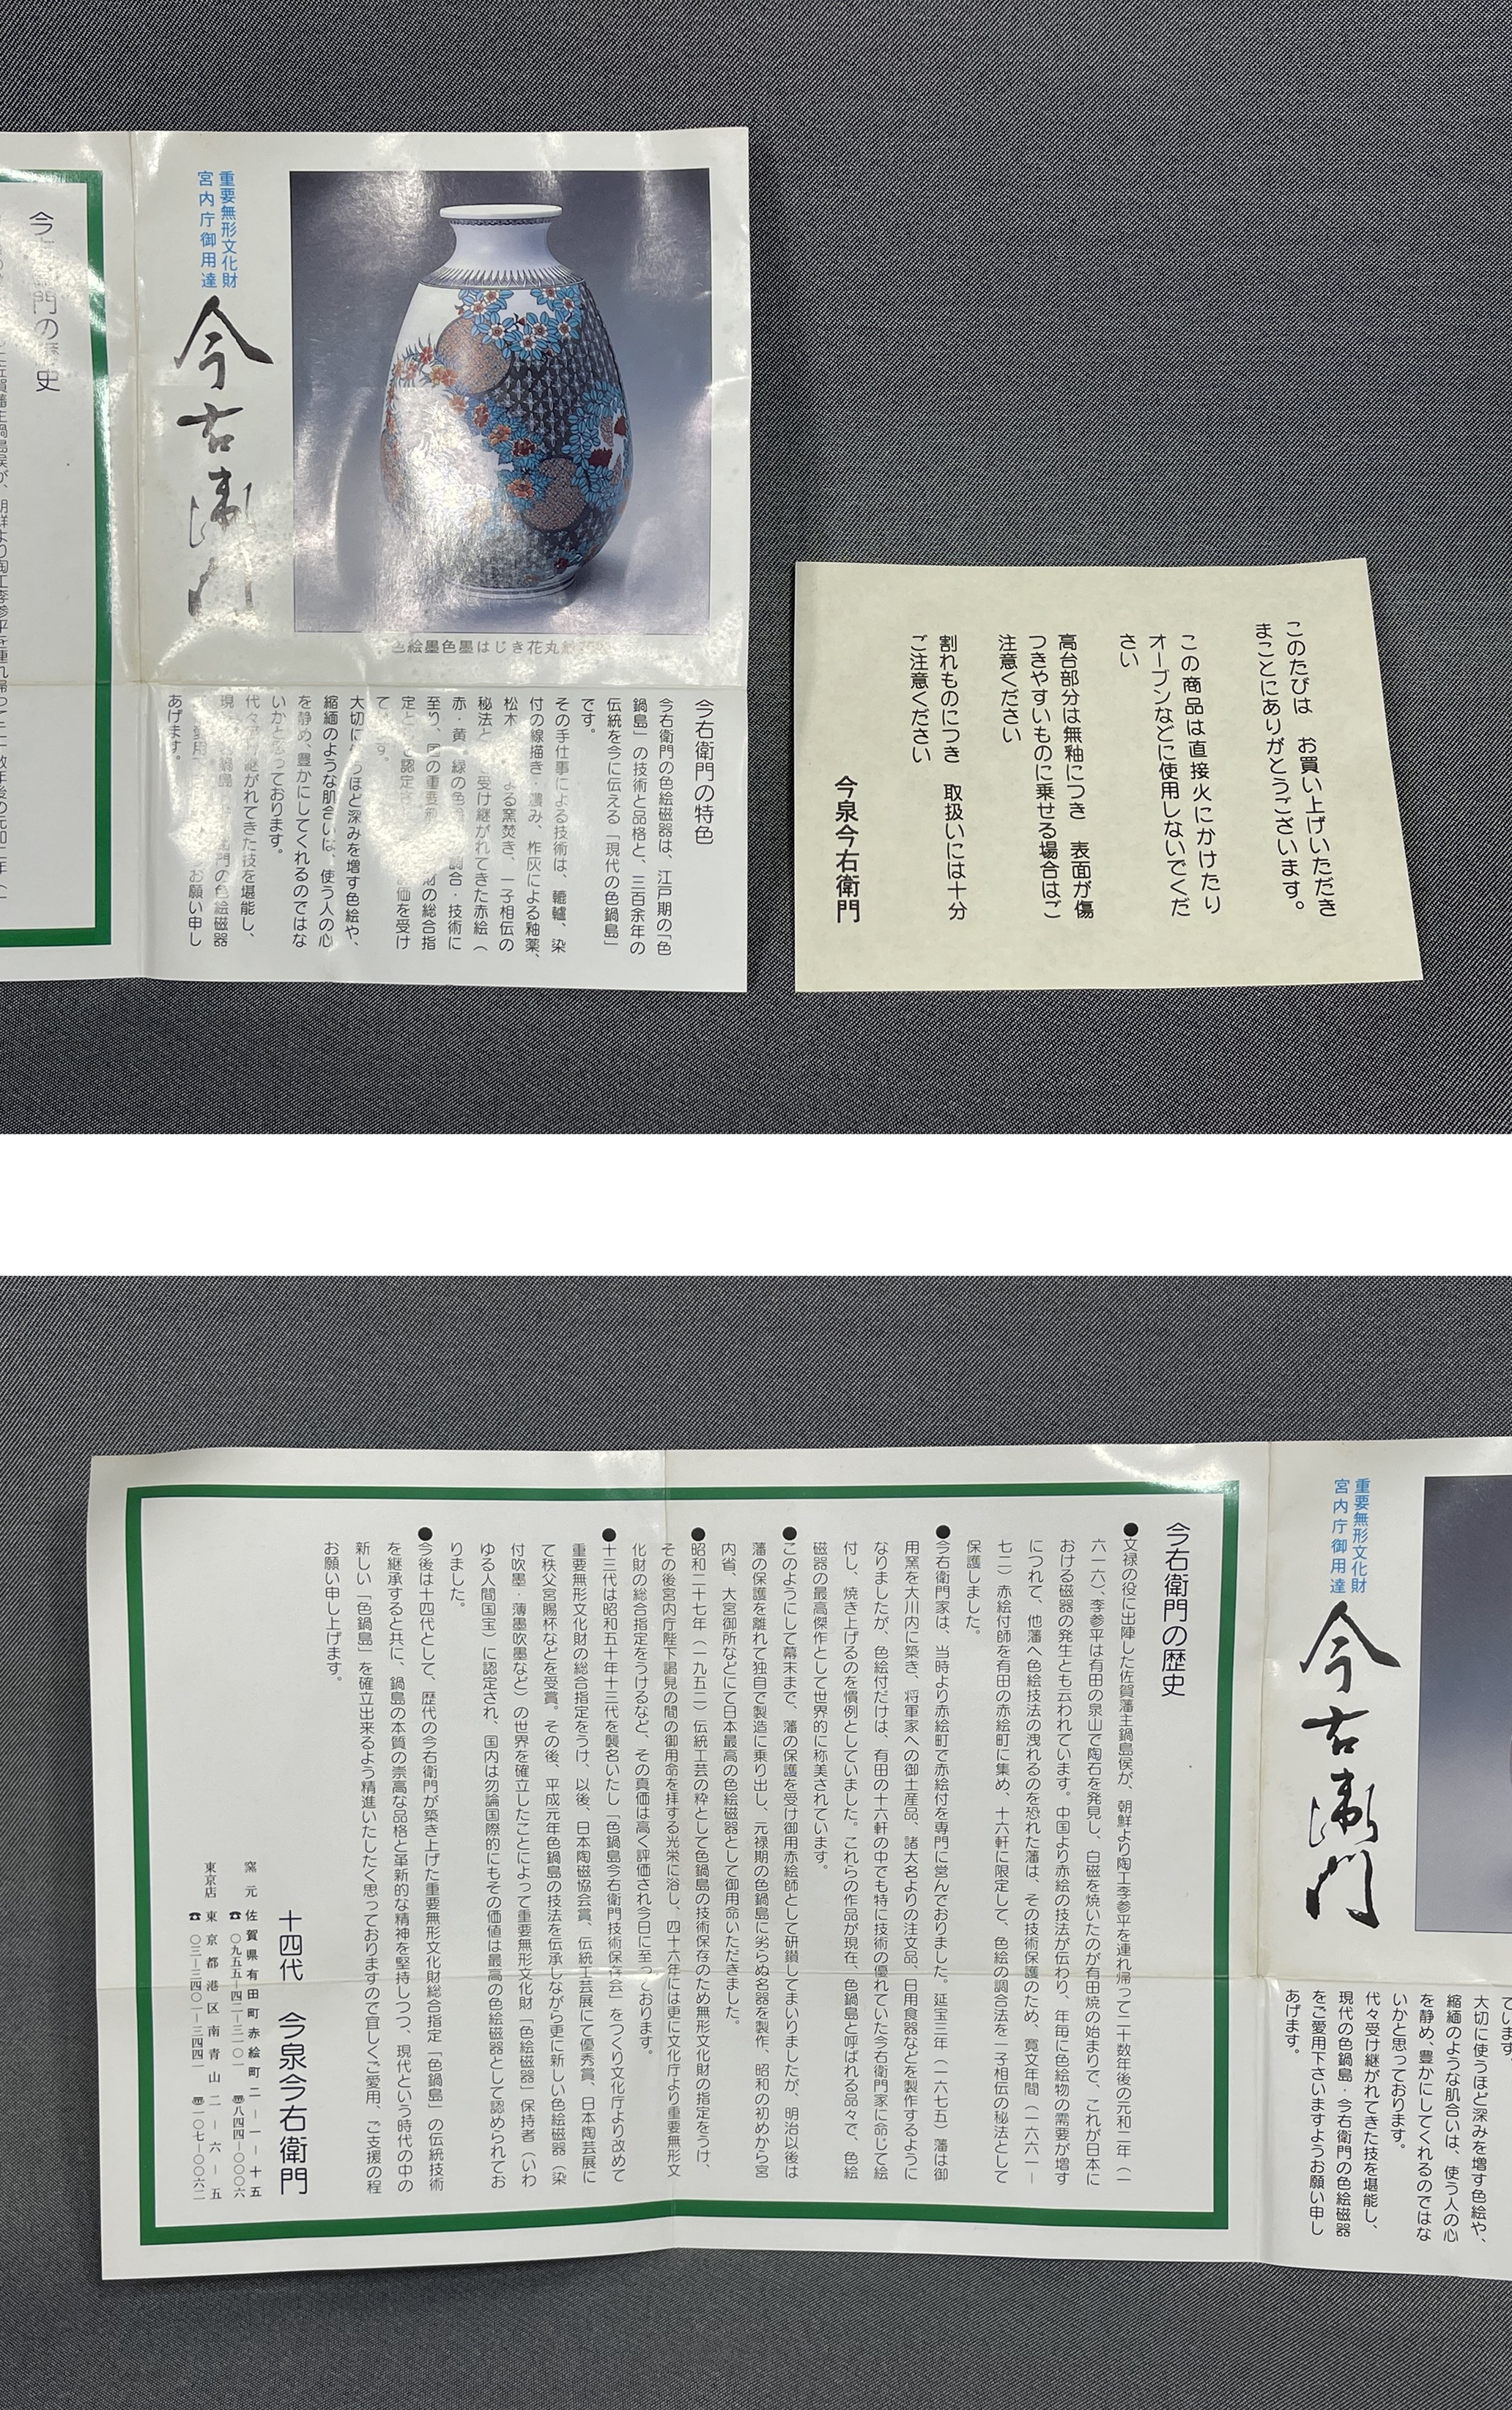 このたびは　お買い上げいただき
まことにありがとうございます。
この商品は直接火にかけたり
オーブンなどに使用しないでくだ
さい
高台部分は無釉につき　表面が傷
つきやすいものに乗せる場合はご
注意ください
割れものにつき　取扱いには十分
ご注意ください
今泉今右衛門
重要無形文化財
宮内庁御用達
今右衛門
色絵墨色墨はじき花丸
今右衛門の特色
今右衛門の色絵磁器は、江戸期の「色
鍋島」の技術と品格と、三百余年の
伝統を今に伝える「現代の色鍋島」
です。
その手仕事による技術は、轆轤、染
付の線描き・濃み、柞灰による釉薬、
松木による窯焚き、一子相伝の
秘法と受け継がれてきた赤絵（
赤・黄・緑の色 調合・技術に
至り、国の重要 財の総合指
定 認定 価を受け
て
大切に使うほど深みを増す色絵や、
縮緬のような肌合いは、使う人の心
を静め、豊かにしてくれるのではな
いかと思っております。
代々受け継がれてきた技を堪能し、
現代の色鍋島・今右衛門の色絵磁器
をご愛用下さいますようお願い申し
あげます。
今右衛門の歴史
今右衛門の歴史
●文禄の役に出陣した佐賀藩主鍋島侯が、朝鮮より陶工李参平を連れ帰って二十数年後の元和二年（一
六一六）、李参平は有田の泉山で陶石を発見し、白磁を焼いたのが有田焼の始まりで、これが日本に
おける磁器の発生とも云われています。中国より赤絵の技法が伝わり、年毎に色絵物の需要が増す
につれて、他藩へ色絵技法の洩れるのを恐れた藩は、その技術保護のため、寛文年間（一六六一―
七二）赤絵付師を有田の赤絵町に集め、十六軒に限定して、色絵の調合法を一子相伝の秘法として
保護しました。
●今右衛門家は、当時より赤絵町で赤絵付を専門に営んでおりました。延宝三年（一六七五）藩は御
用窯を大川内に築き、将軍家への御土産品、諸大名よりの注文品、日用食器などを製作するように
なりましたが、色絵付だけは、有田の十六軒の中でも特に技術の優れていた今右衛門家に命じて絵
付し、焼き上げるのを慣例としていました。これらの作品が現在、色鍋島と呼ばれる品々で、色絵
磁器の最高傑作として世界的に称美されています。
●このようにして幕末まで、藩の保護を受け御用赤絵師として研鑽してまいりましたが、明治以後は
藩の保護を離れて独自で製造に乗り出し、元禄期の色鍋島に劣らぬ名器を製作、昭和の初めから宮
内省、大宮御所などにて日本最高の色絵磁器として御用命いただきました。
●昭和二十七年（一九五二）伝統工芸の粋として色鍋島の技術保存のため無形文化財の指定をうけ、
その後宮内庁陛下謁見の間の御用命を拝する光栄に浴し、四十六年には更に文化庁より重要無形文
化財の総合指定をうけるなど、その真価は高く評価され今日に至っております。
●十三代は昭和五十年十三代を襲名いたし「色鍋島今右衛門技術保存会」をつくり文化庁より改めて
重要無形文化財の総合指定をうけ、以後、日本陶磁協会賞、伝統工芸展にて優秀賞、日本陶芸展に
て秩父宮賜杯などを受賞。その後、平成元年色鍋島の技法を伝承しながら更に新しい色絵磁器（染
付吹墨・薄墨吹墨など）の世界を確立したことによって重要無形文化財「色絵磁器」保持者（いわ
ゆる人間国宝）に認定され、国内は勿論国際的にもその価値は最高の色絵磁器として認められてお
りました。
●今後は十四代として、歴代の今右衛門が築き上げた重要無形文化財総合指定「色鍋島」の伝統技術
を継承すると共に、鍋島の本質の崇高な品格と革新的な精神を堅持しつつ、現代という時代の中の
新しい「色鍋島」を確立出来るよう精進いたしたく思っておりますので宜しくご愛用、ご支援の程
お願い申し上げます。
十四代　今泉今右衛門
窯元　佐賀県有田町赤絵町二―一―十五
☎〇九五五―四二―三一〇一　〠八四四―〇〇〇六
東京店　東京都港区南青山二―六―五
☎〇三―三四〇一―三四四一　〠一〇七―〇〇六二
重要無形文化財
宮内庁御用達
今右衛門
ています
大切に使うほど深みを増す色絵や、
縮緬のような肌合いは、使う人の心
を静め、豊かにしてくれるのではな
いかと思っております。
代々受け継がれてきた技を堪能し、
現代の色鍋島・今右衛門の色絵磁器
をご愛用下さいますようお願い申し
あげます。